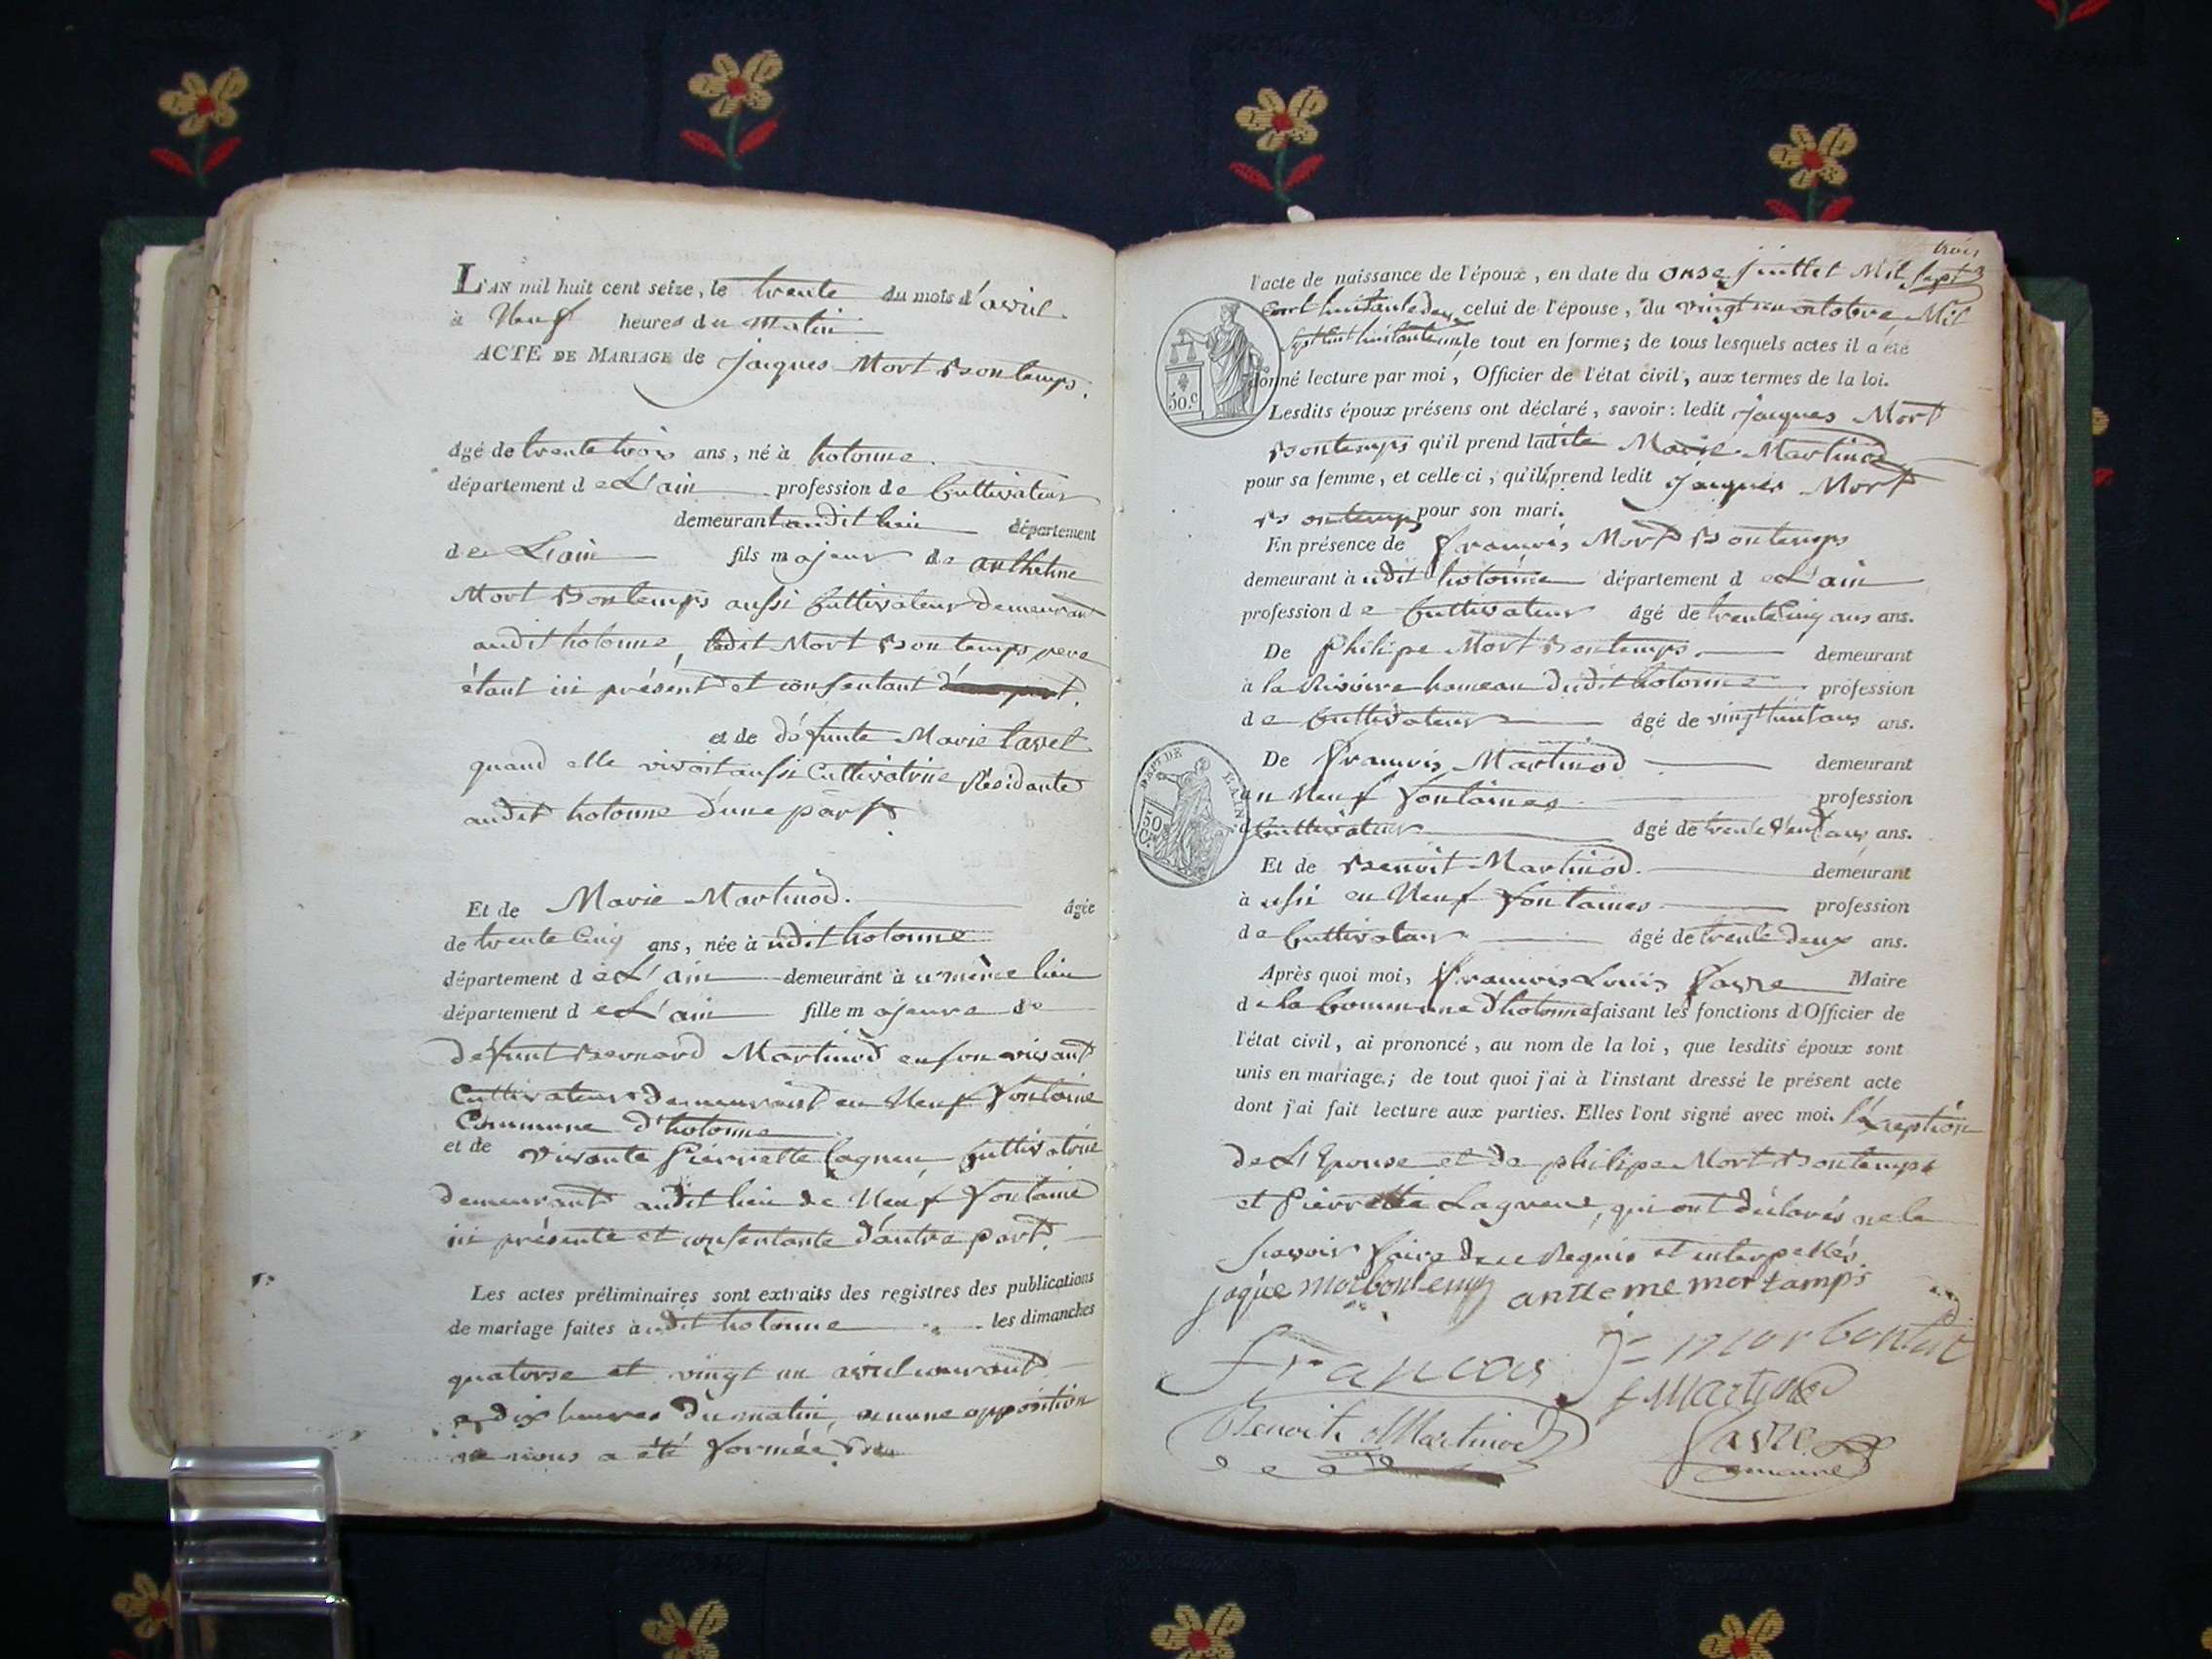 L'AN mil huit cent seize, le trente du mois d'avril
à Neuf heures du matin
ACTE DE MARIAGE de jacques Mort Bontemps.
âgé de trente trois ans, né à hotonne
département de L'ain profession de Cultivateur
demeurant audit lieu département
de L'ain fils majeur de anthelme
Mort Bontemps aussi Cultivateur demeurant
audit hotonne, ledit Mort Bontemps pere
étant ici présent et consentant
et de défunte Marie Tavet
quand elle vivoit aussi Cultivatrice Résidante
audit hotonne d'une part.
Et de Marie Martinod. âgée
de trente Cinq ans, née à udit hotonne
département de L'ain demeurant à u même lieu
département de L'ain fille majeure de
défunt Bernard Martinod en son vivant
Cultivateur demeurant en Neuf Fontaine
Commune d'hotonne
et de vivante Pierrette Cagneu Cultivatrice
demeurant audit lieu de Neuf Fontaine
ici présente et consentante d'autre part.
Les actes préliminaires sont extraits des registres des publications
de mariage faites à udit hotonne les dimanches
quatorse et vingt un avril courant
a dix heures du matin, aucune opposition
ne nous a été formée
trois
l'acte de naissance de l'époux, en date du onse juillet Mil Sept
Cent huitante deux celui de l'épouse, du vingt un octobre Mil
Sept Cent huitante un, le tout en forme; de tous lesquels actes il a été
donné lecture par moi, Officier de l'état civil, aux termes de la loi.
50.c
Lesdits époux présens ont déclaré, savoir: ledit jacques Mort
Bontemps qu'il prend ladite Marie Martinod
pour sa femme, et celle-ci, qu'il prend ledit jacques Mort
Bontemps pour son mari.
En présence de François Mort Bontemps
demeurant à udit hotonne département de L'ain
profession de Cultivateur âgé de trente Cinq ans ans.
De Philipe Mort Bontemps. demeurant
à la Rivoire hameau dudit hotonne profession
de Cultivateur âgé de vingt huit ans ans.
DEPT. DE L'AIN.
50 C.
De François Martinod demeurant
en Neuf Fontaines profession
Cultivateur âgé de trente Neuf ans ans.
Et de Benoit Martinod. demeurant
à ussi en Neuf Fontaines profession
de Cultivateur âgé de trente deux ans.
Après quoi moi, François Louis Favre Maire
de la Commune d'hotonne faisant les fonctions d'Officier de
l'état civil, ai prononcé, au nom de la loi, que lesdits époux sont
unis en mariage; de tout quoi j'ai à l'instant dressé le présent acte
dont j'ai fait lecture aux parties. Elles l'ont signé avec moi. à L'exeption
de L'Epouse et de philipe Mort Bontemps
et Pierrette Lagneue, qui ont déclarés ne le
scavoir faire de ce Requis et interpellés
jaque morbontemp anteme mortamps
Francois morbontat
f Martinod
Benoit Martinod Favre
maire